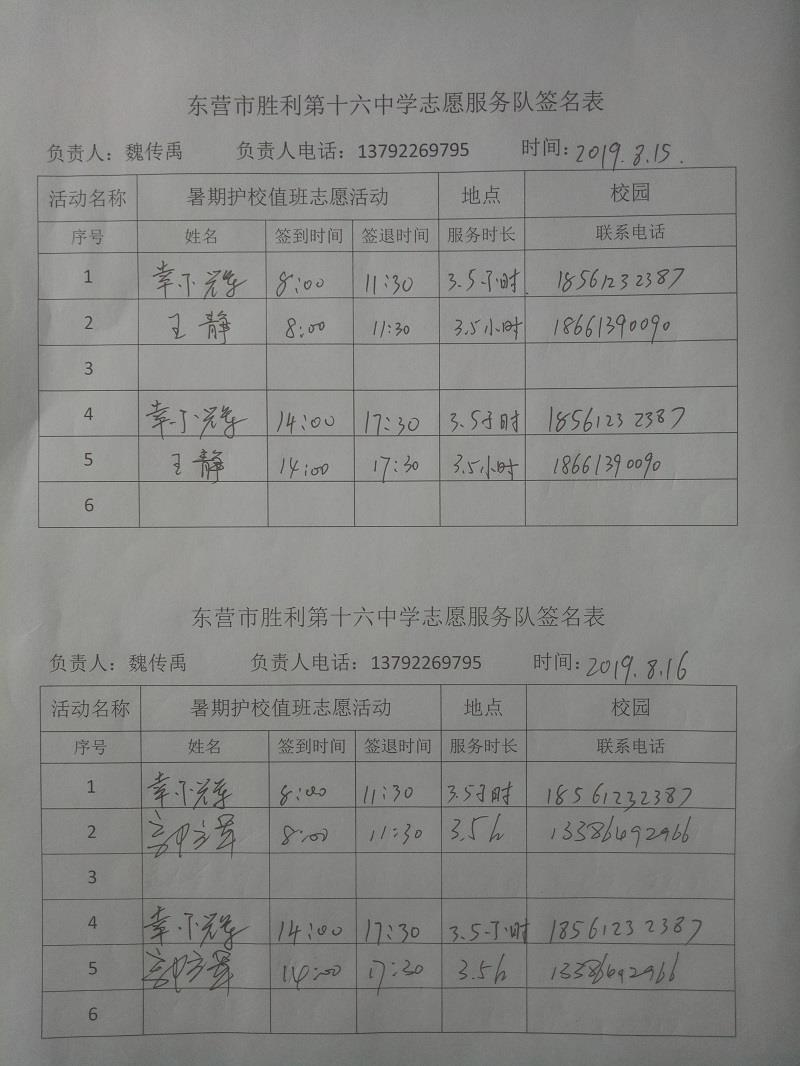 东营市胜利第十六中学志愿服务队签名表
负责人：魏传禹 负责人电话：13792269795 时间：2019.8.15.
活动名称 暑期护校值班志愿活动 地点 校园
序号 姓名 签到时间 签退时间 服务时长 联系电话
1 8:00 11:30 3.5小时. 18561232387
2 王静 8:00 11:30 3.5小时 18661390090
3
4 14:00 17:30 3.5小时 18561232387
5 王静 14:00 17:30 3.5小时 18661390090
6
东营市胜利第十六中学志愿服务队签名表
负责人：魏传禹 负责人电话：13792269795 时间：2019.8.16
活动名称 暑期护校值班志愿活动 地点 校园
序号 姓名 签到时间 签退时间 服务时长 联系电话
1 8:00 11:30 3.5小时 18561232387
2 8:00 11:30 3.5h 13386492966
3
4 14:00 17:30 3.5小时 18561232387
5 14:00 17:30 3.5h 13386492966
6